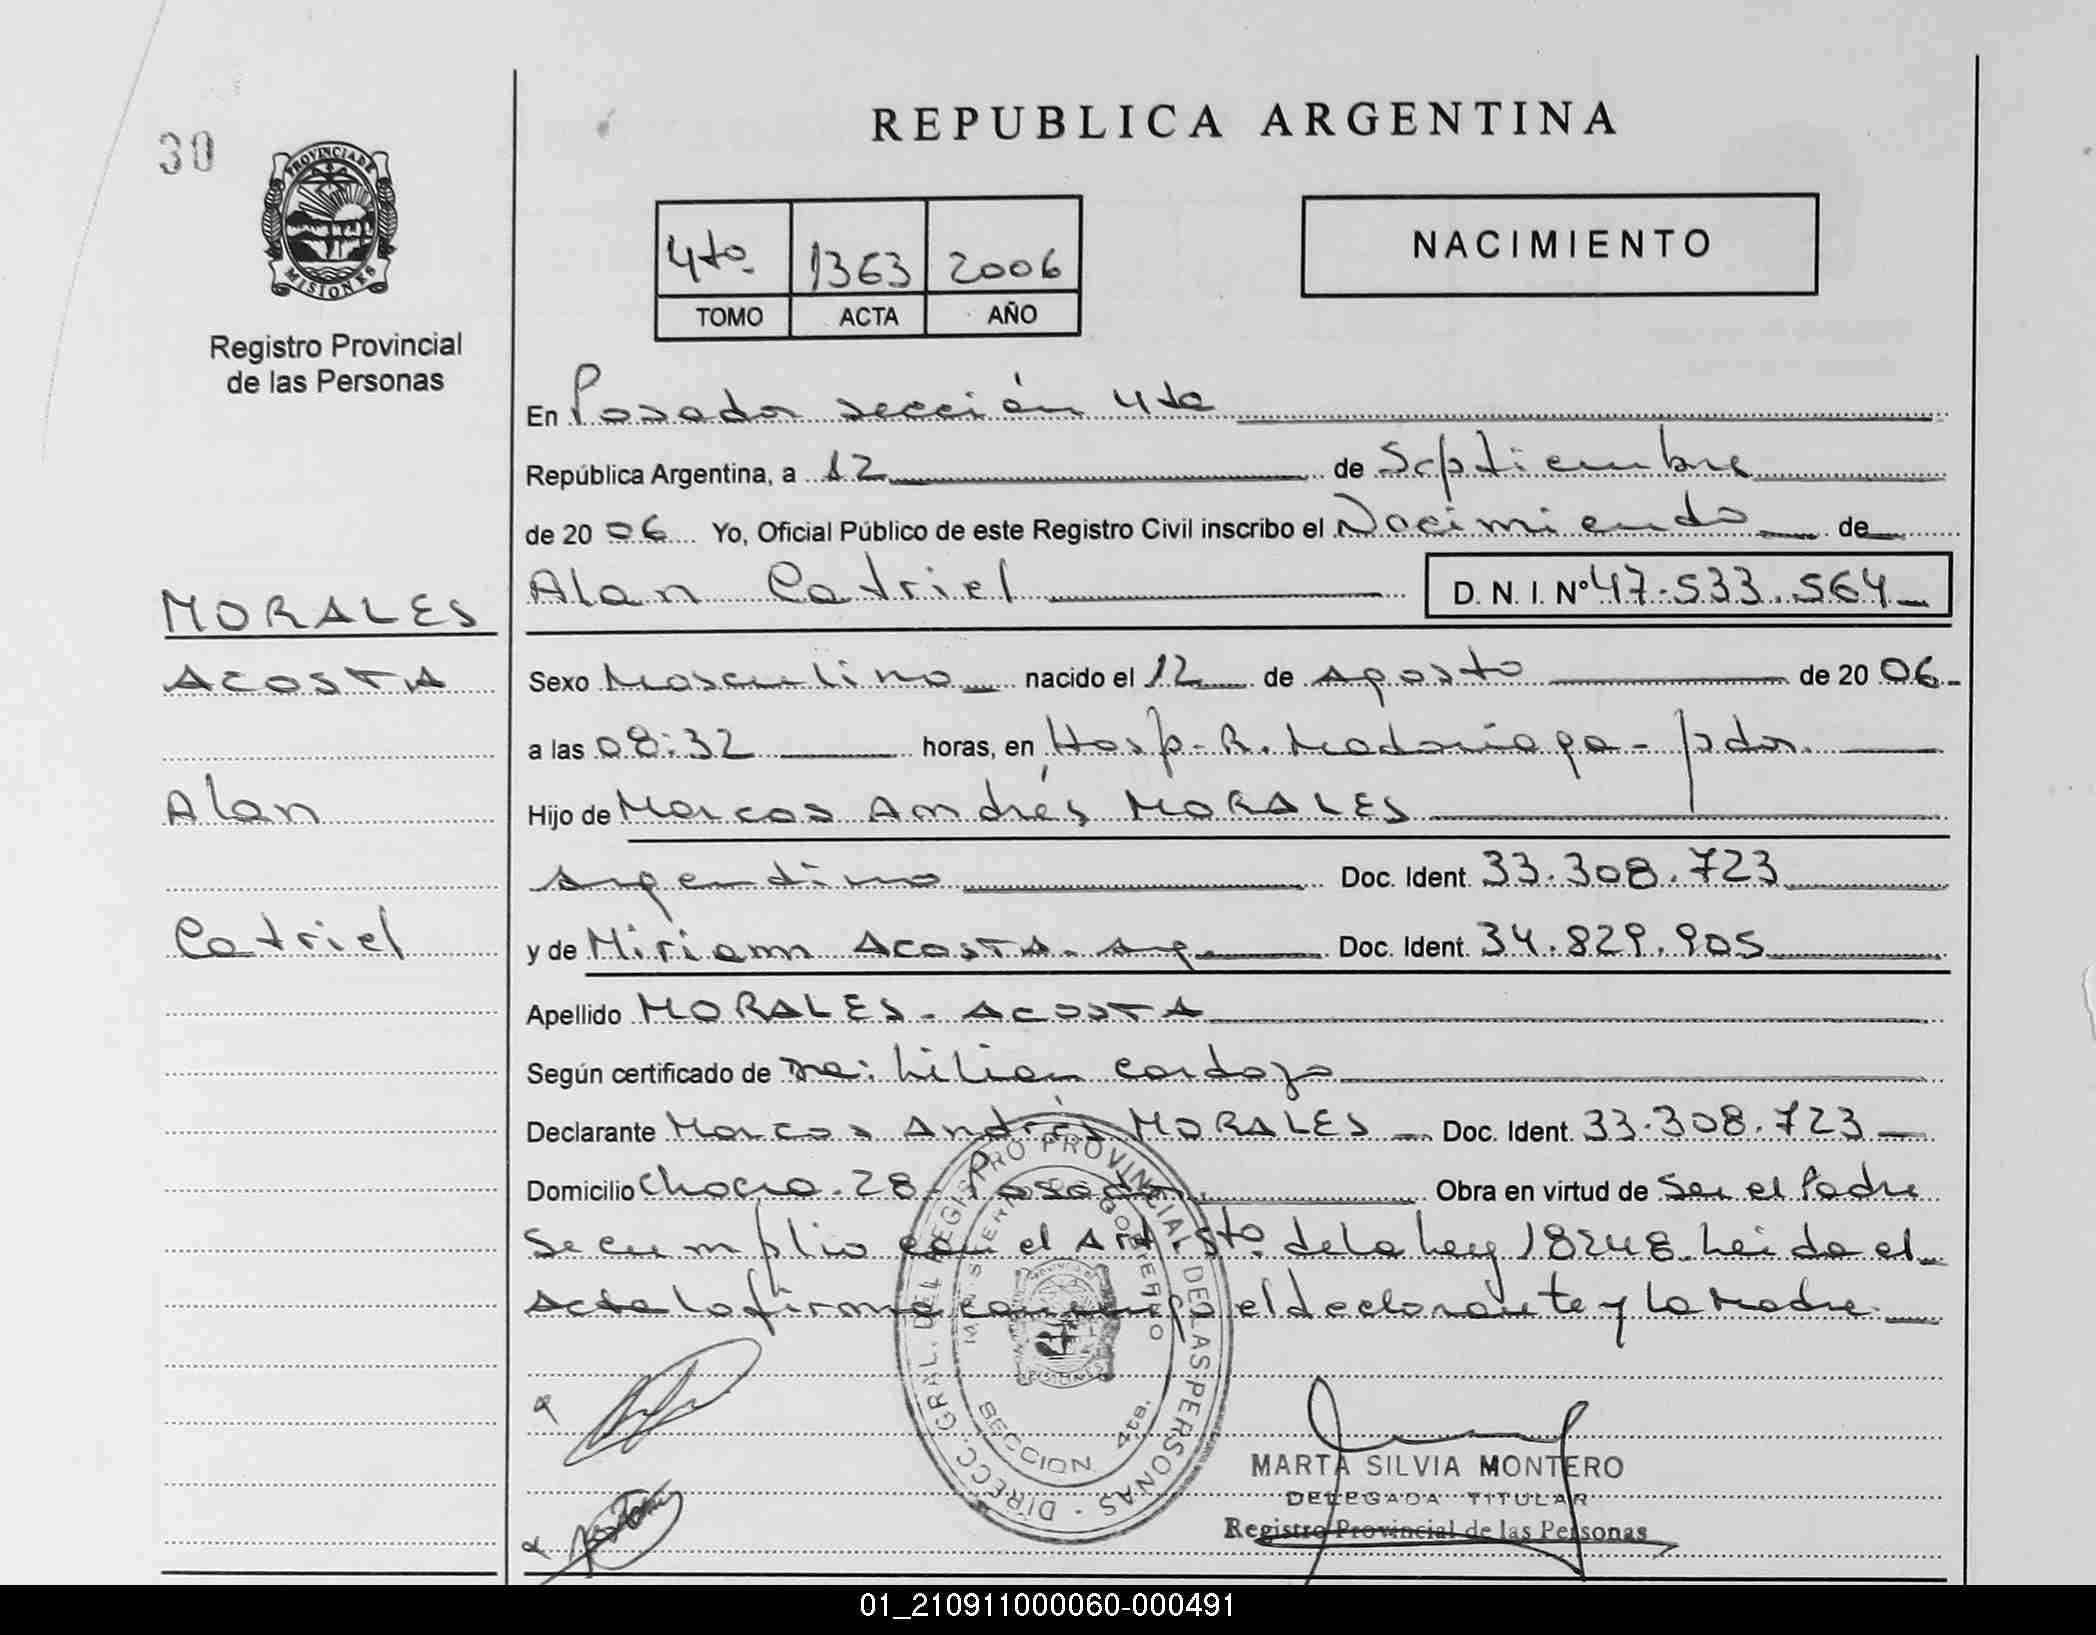 30
PROVINCIA DE
MISIONES
Registro Provincial
de las Personas
REPUBLICA ARGENTINA
4to. 1363 2006
TOMO ACTA AÑO
NACIMIENTO
En Posadas sección 4ta
República Argentina, a 12 de Septiembre
de 2006 Yo, Oficial Público de este Registro Civil inscribo el Nacimiento de
Alan Catriel D. N. I. Nº 47.533.564
MORALES
ACOSTA
Alan
Catriel
Sexo Masculino nacido el 12 de Agosto de 2006
a las 08:32 horas, en Hosp. R. Madariaga - pdas.
Hijo de Marcos Andrés MORALES
Argentino Doc. Ident. 33.308.723
y de Miriam ACOSTA - Arg. Doc. Ident. 34.829.905
Apellido MORALES - ACOSTA
Según certificado de Dra: Lilian Cardozo
Declarante Marcos Andrés MORALES Doc. Ident. 33.308.723
Domicilio Chacra - 28 - Posadas Obra en virtud de Ser el Padre
Se cumplio con el Art. 5to. de la Ley 18248. Leida el
Acta la firma conmigo el declarante y la Madre.
DIRECC. GRAL. DEL REGISTRO PROVINCIAL DE LAS PERSONAS
GOBIERNO
SECCION 4ta.
MARTA SILVIA MONTERO
DELEGADA TITULAR
Registro Provincial de las Personas
01_210911000060-000491